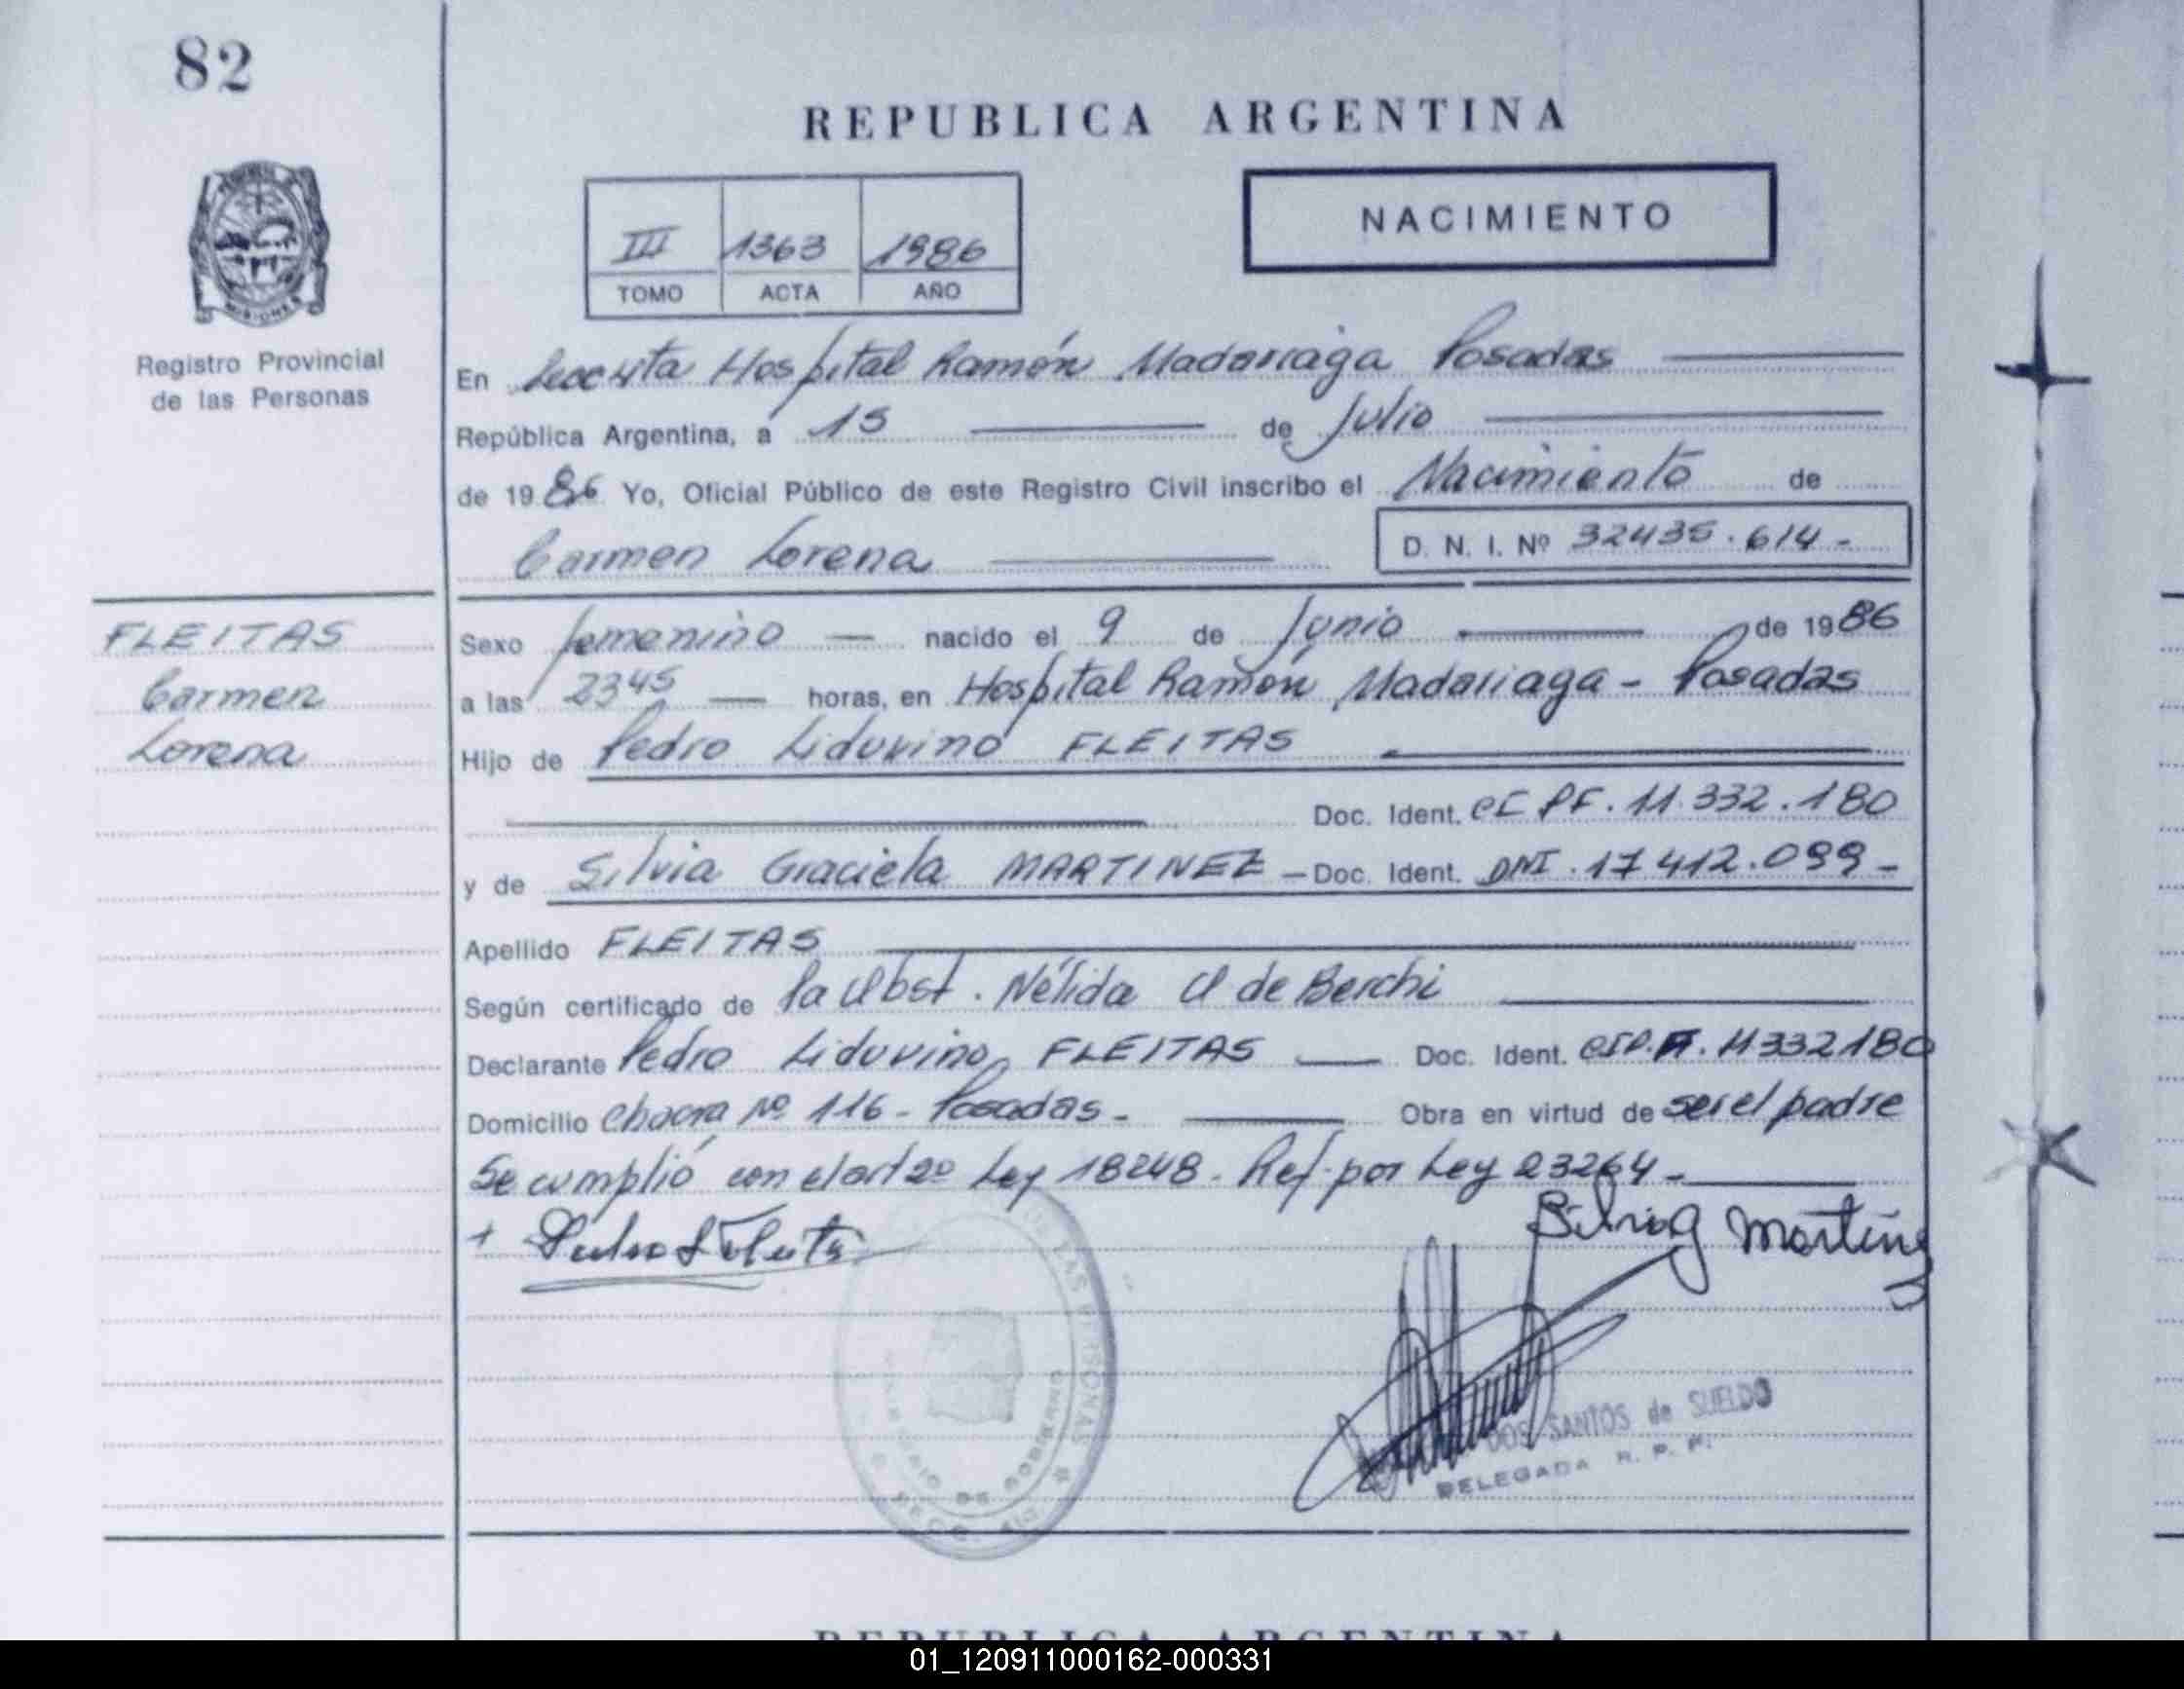 82
REPUBLICA ARGENTINA
NACIMIENTO
III 1363 1986
TOMO ACTA AÑO
MISIONES
Registro Provincial
de las Personas
En Hospital Ramón Madariaga Posadas
República Argentina, a 15 de Julio
de 1986 Yo, Oficial Público de este Registro Civil inscribo el Nacimiento de
Carmen Lorena D. N. I. Nº 32435.614-
FLEITAS
Carmen
Lorena
Sexo femenino — nacido el 9 de Junio de 1986
a las 2345 — horas, en Hospital Ramón Madariaga - Posadas
Hijo de Pedro Liduvino FLEITAS
Doc. Ident. CI PF. 11.332.180
y de Silvia Graciela MARTINEZ — Doc. Ident. DNI. 17412.099-
Apellido FLEITAS
Según certificado de la Obst. Nélida de Berchi
Declarante Pedro Liduvino FLEITAS — Doc. Ident. 11332180
Domicilio chacra Nº 116 - Posadas - Obra en virtud de ser el padre
Se cumplió con el art 2º Ley 18248. Ref. por Ley 23264-
Silvia G Martinez
DE LAS PERSONAS
MINISTERIO DE GOBIERNO
DOS SANTOS de SUELDO
DELEGADA R. P. P.
REPUBLICA ARGENTINA
01_120911000162-000331